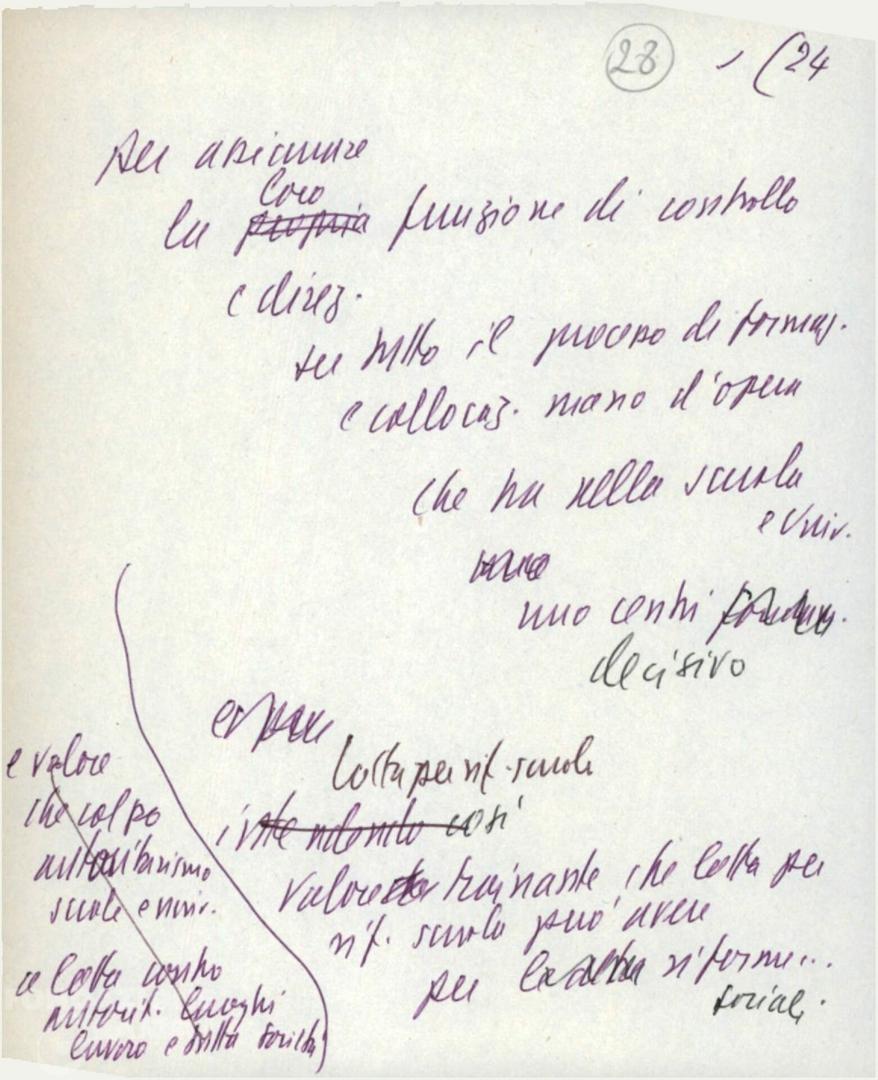 28 (24
Per assicurare
loro
la propria funzione di controllo
e direz.
su tutto il processo di formaz.
e collocaz. mano d'opera
che ha nella scuola
e Univ.
uno centri
decisivo
Lotta per rif. scuola
intendendo così
valore trainante che lotta per
rif. scuola può avere
per le altre riforme...
sociali.
e valore
che colpo
autoritarismo
scuola e univ.
a lotta contro
autorit. luoghi
lavoro e società)